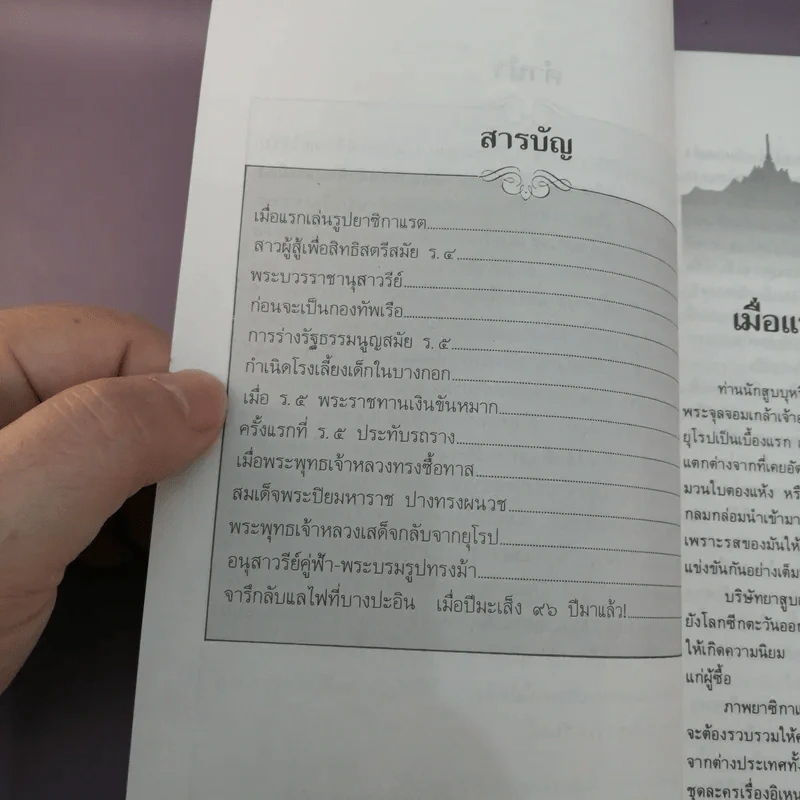 สารบัญ
เมื่อแรกเล่นรูปยาซิกาแรต
สาวผู้สู้เพื่อสิทธิสตรีสมัย ร.๔
พระบวรราชานุสาวรีย์
ก่อนจะเป็นกองทัพเรือ
การร่างรัฐธรรมนูญสมัย ร.๕
กำเนิดโรงเลี้ยงเด็กในบางกอก
เมื่อ ร.๕ พระราชทานเงินขันหมาก
ครั้งแรกที่ ร.๕ ประทับรถราง
เมื่อพระพุทธเจ้าหลวงทรงซื้อทาส
สมเด็จพระปิยมหาราช ปางทรงผนวช
พระพุทธเจ้าหลวงเสด็จกลับจากยุโรป
อนุสาวรีย์คู่ฟ้า-พระบรมรูปทรงม้า
จารึกลับแลไฟที่บางปะอิน เมื่อปีมะเส็ง ๙๖ ปีมาแล้ว!
เมื่อแ
ท่านนักสูบบุห
พระจุลจอมเกล้าเจ้าอ
ยุโรปเป็นเบื้องแรก
แตกต่างจากที่เคยอัด
มวนใบตองแห้ง หรื
กลมกล่อมนำเข้ามา
เพราะรสของมันให้
แข่งขันกันอย่างเต็ม
บริษัทยาสูบ
ยังโลกซีกตะวันออก
ให้เกิดความนิยม
แก่ผู้ซื้อ
ภาพยาซิกาแ
จะต้องรวบรวมให้
จากต่างประเทศทั้ง
ชุดละครเรื่องอิเหน